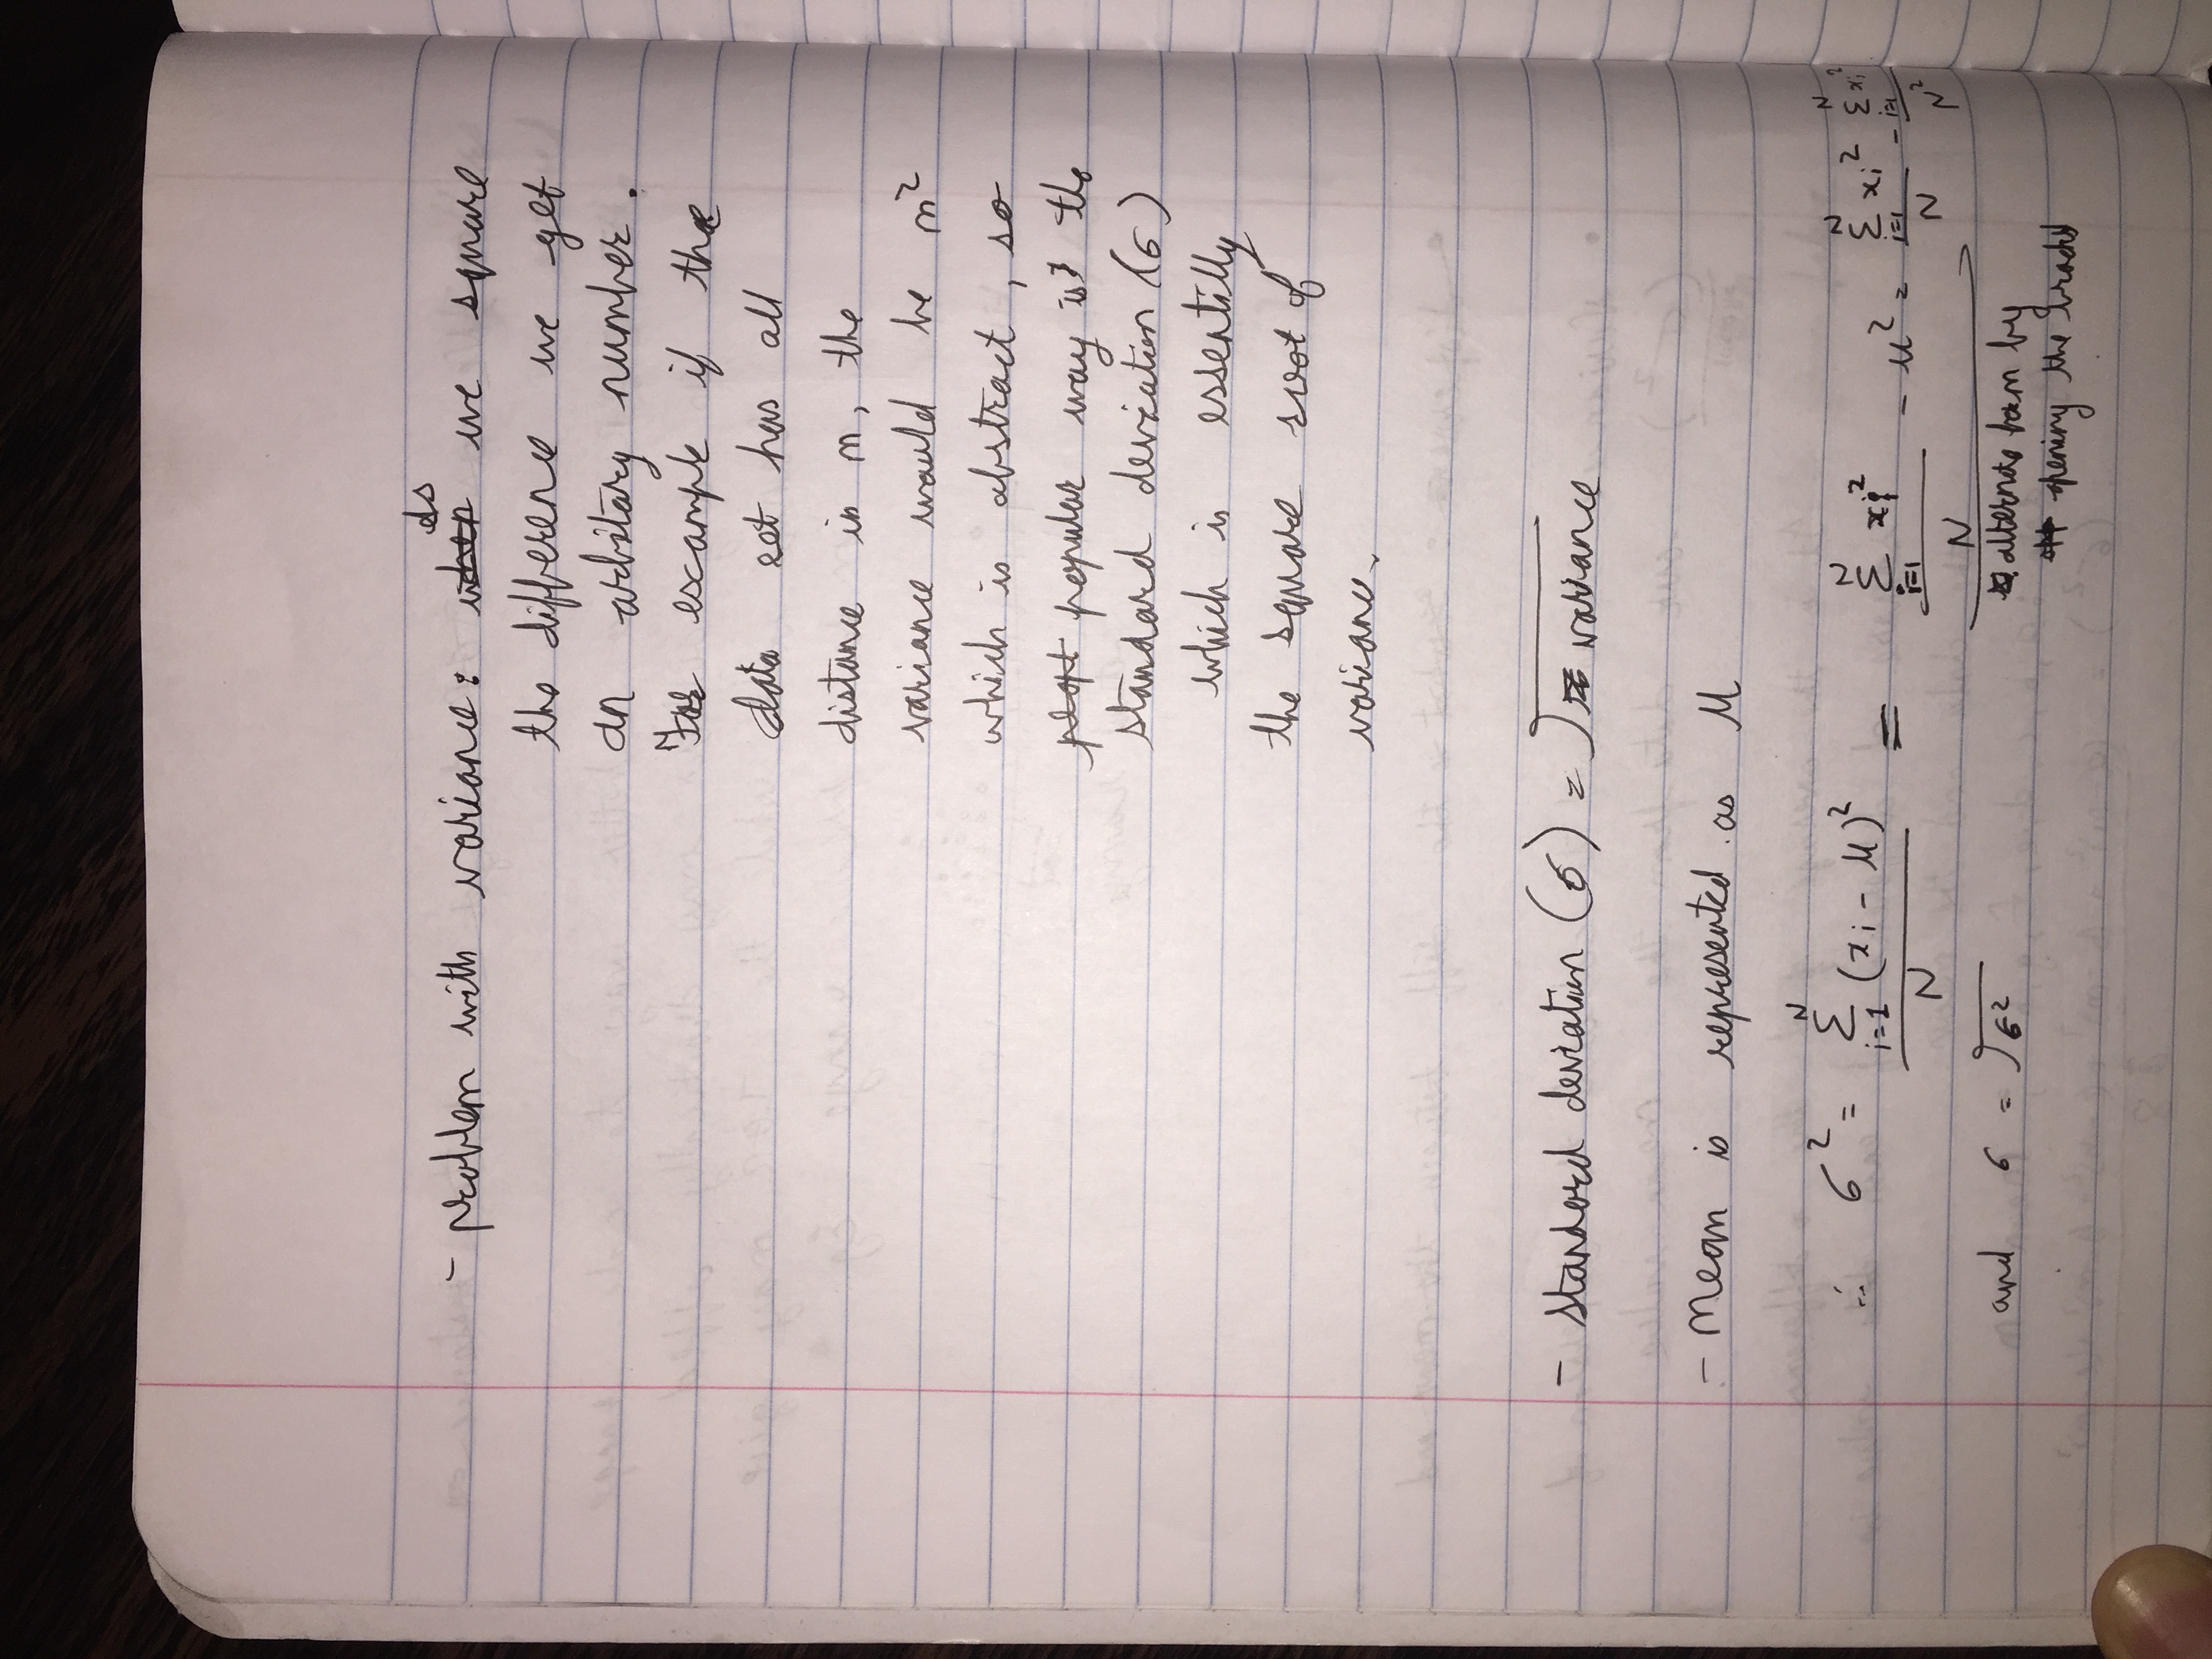 - problem with variance: as we square
the difference we get
an arbitary number.
For example if the
data set has all
distance in m, the
variance would be m²
which is abstract, so
popular way is the
standard deviation (σ)
which is essentilly
the square root of
variance.
- standard deviation (σ) = √variance
- Mean is represented as μ
∴ σ² = Σ_{i=1}^{N} (xᵢ - μ)² / N = Σ_{i=1}^{N} xᵢ² / N - μ² = Σ_{i=1}^{N} xᵢ² / N - Σ_{i=1}^{N} xᵢ² / N²
and σ = √σ²
alternate form by
opening the bracket